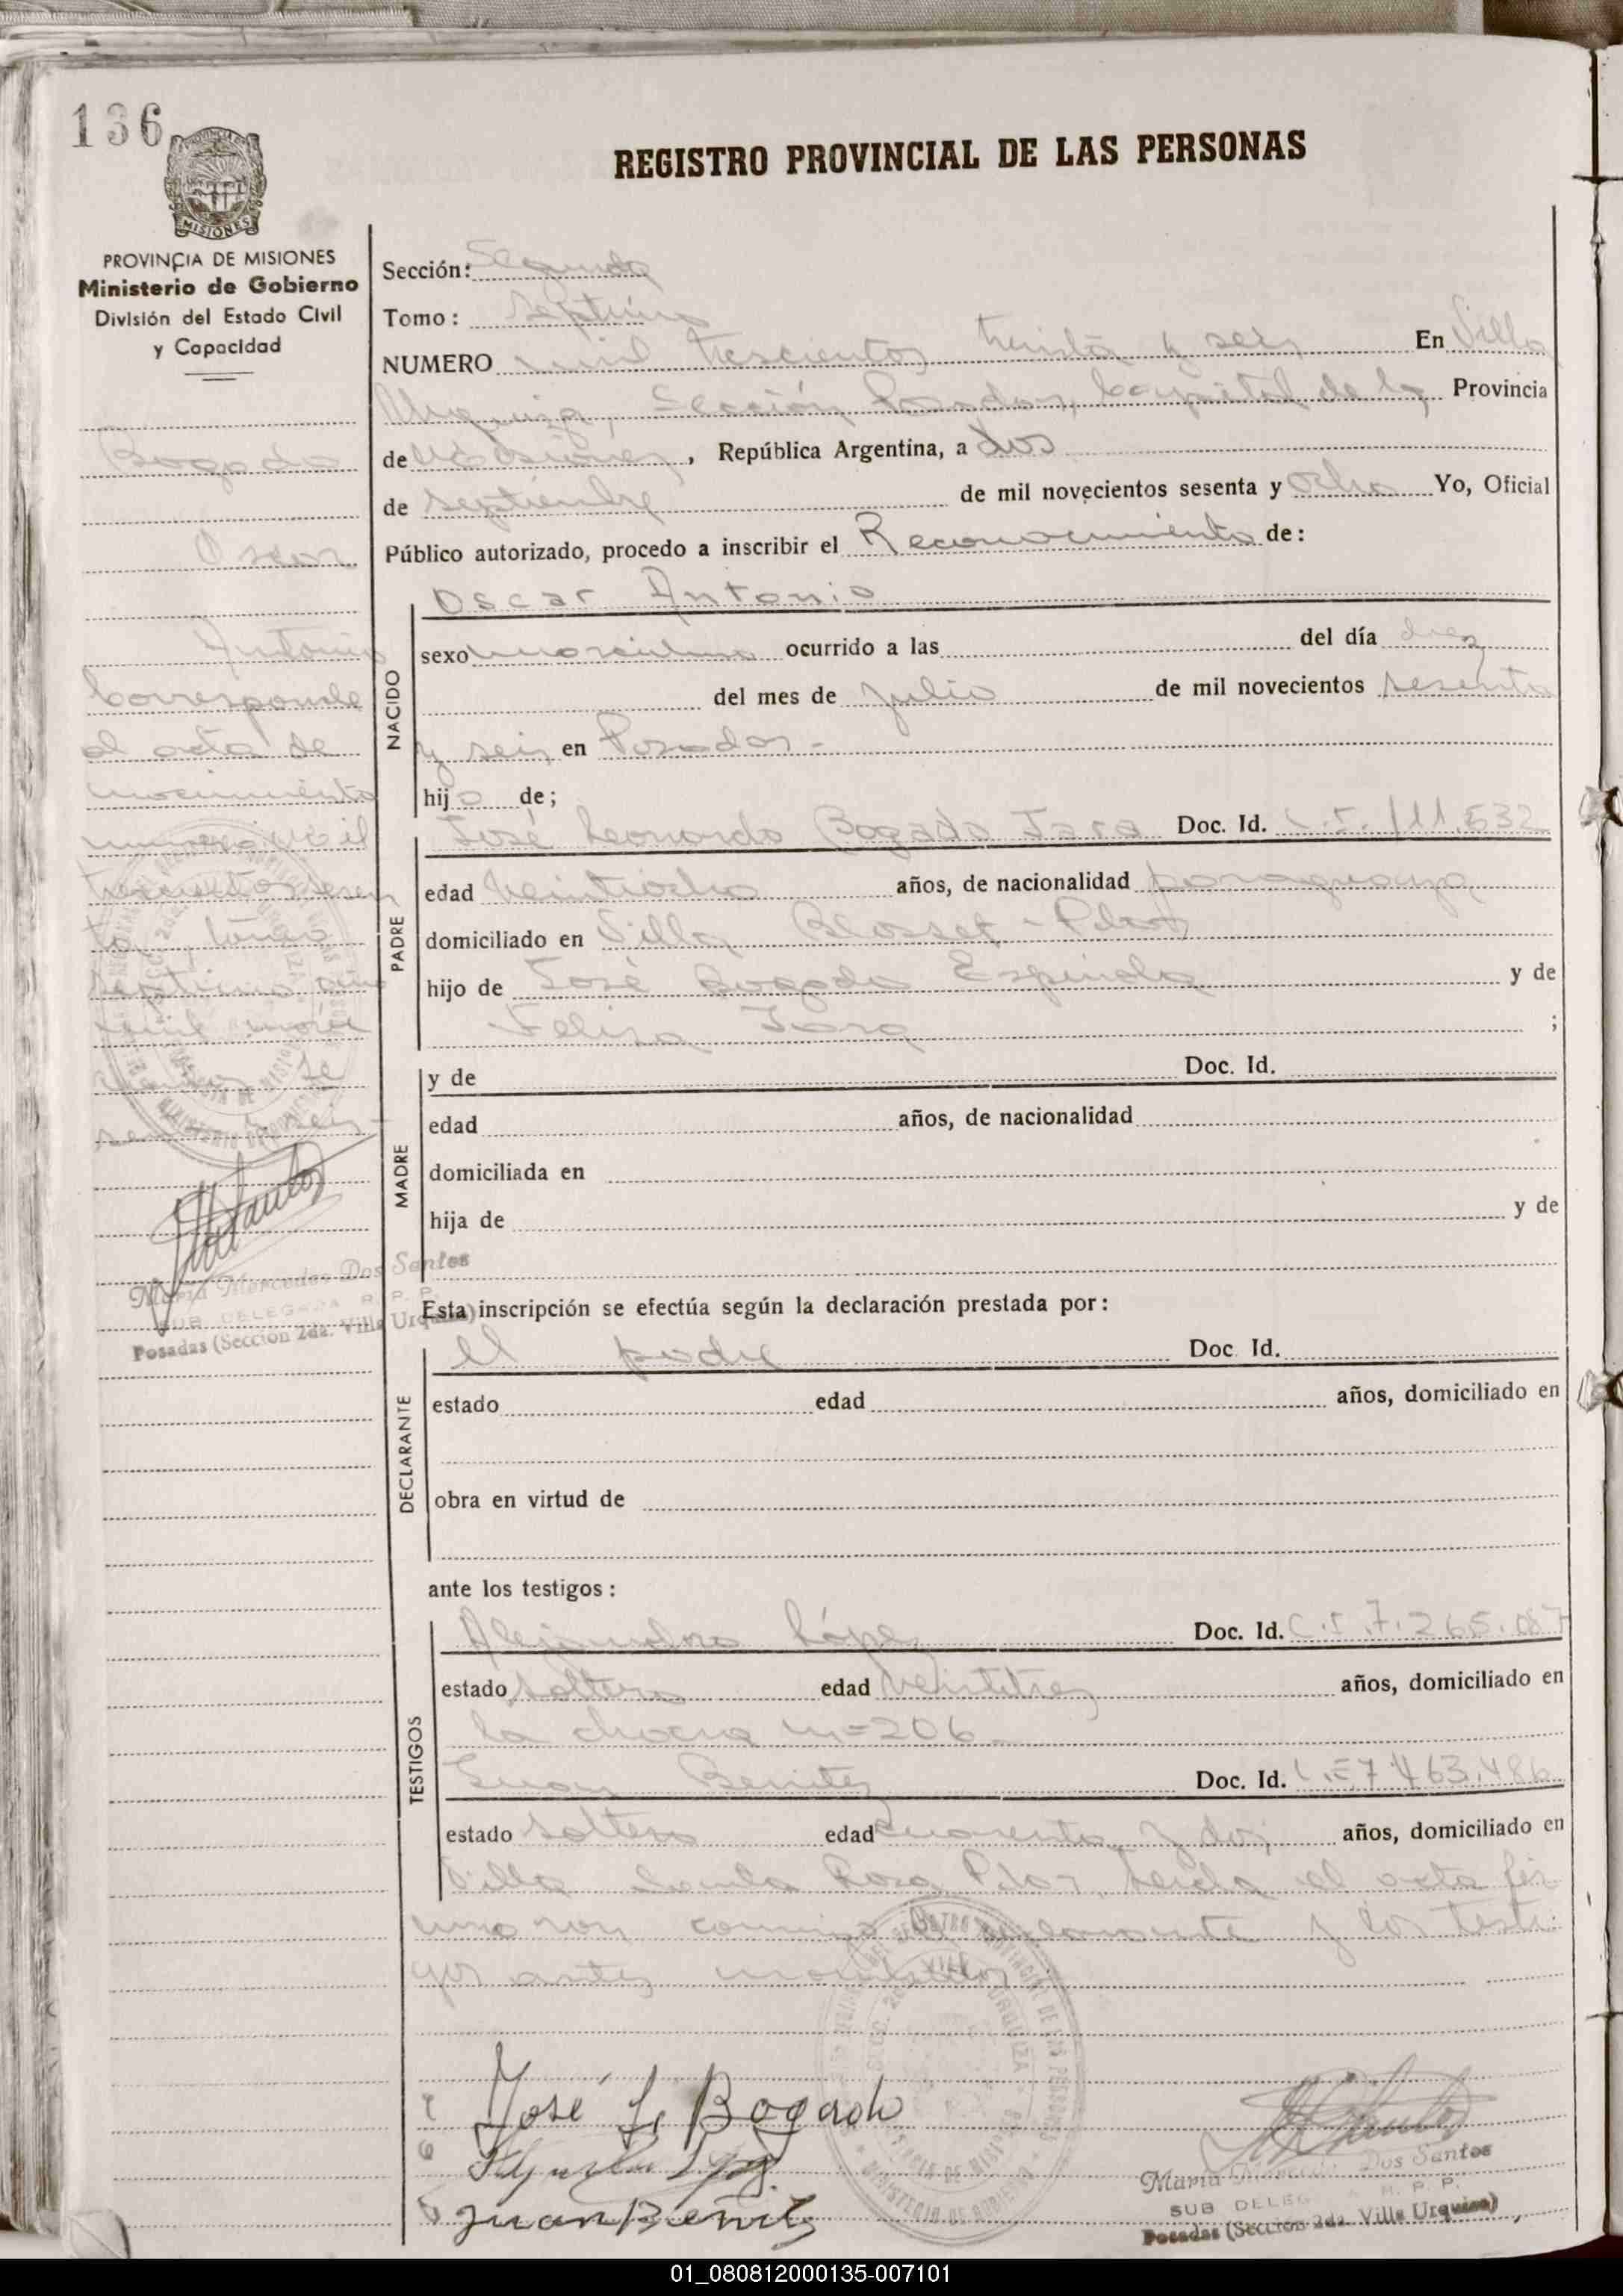 136
REGISTRO PROVINCIAL DE LAS PERSONAS
MISIONES
PROVINCIA DE MISIONES
Ministerio de Gobierno
División del Estado Civil
y Capacidad
Bogado
Oscar
Antonio
Corresponde
al acta de
nacimiento
número mil
trescientos sesen
ta, tomo
septimo año
mil nove
cientos se
senta y seis
Maria Mercedes Dos Santos
SUB DELEGADA R. P. P.
Posadas (Sección 2da. Villa Urquiza)
Sección: Segunda
Tomo: septimo
NUMERO mil trescientos treinta y seis En Villa
Urquiza, Sección Posadas, Capital de la Provincia
de Misiones, República Argentina, a dos
de septiembre de mil novecientos sesenta y ocho Yo, Oficial
Público autorizado, procedo a inscribir el Reconocimiento de:
NACIDO
Oscar Antonio
sexo masculino ocurrido a las del día diez
del mes de julio de mil novecientos sesenta
y seis en Posadas.-
hijo de;
PADRE
José Leonardo Bogado Jara Doc. Id. C.I. 111.532
edad veintiocho años, de nacionalidad paraguaya
domiciliado en Villa Blosset - Pdas
hijo de José Bogado Espinola y de
Felisa Jara ;
MADRE
y de Doc. Id.
edad años, de nacionalidad
domiciliada en
hija de y de
Esta inscripción se efectúa según la declaración prestada por:
DECLARANTE
el padre Doc. Id.
estado edad años, domiciliado en
obra en virtud de
ante los testigos:
TESTIGOS
Alejandro López Doc. Id. C.I. 7.265.087
estado soltero edad veintitres años, domiciliado en
la chacra nº 206
Juan Benitez Doc. Id. L.E 7.463.486
estado soltero edad cuarenta y dos años, domiciliado en
Villa Santa Rosa Pdas. Leida el acta fir
man conmigo el declarante y los testi
gos antes nombrados
José L. Bogado
Juan Benitez
Maria Mercedes Dos Santos
SUB DELEGADA R. P. P.
Posadas (Sección 2da. Villa Urquiza)
01_080812000135-007101